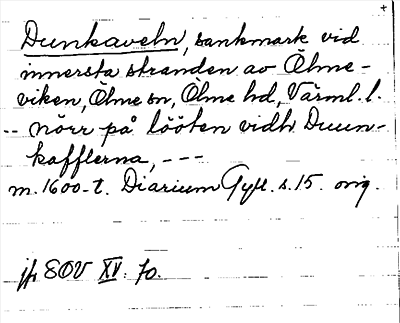 +
Dunkaveln, sankmark vid
innersta stranden av Ölme-
viken, Ölme sn, Ölme hd, Värml. l.
-- nörr på lööten vidh Duun-
kafflerna, ---
m. 1600-t. Diarium Gyll. s. 15. orig.
jfr SOV XV. 70.